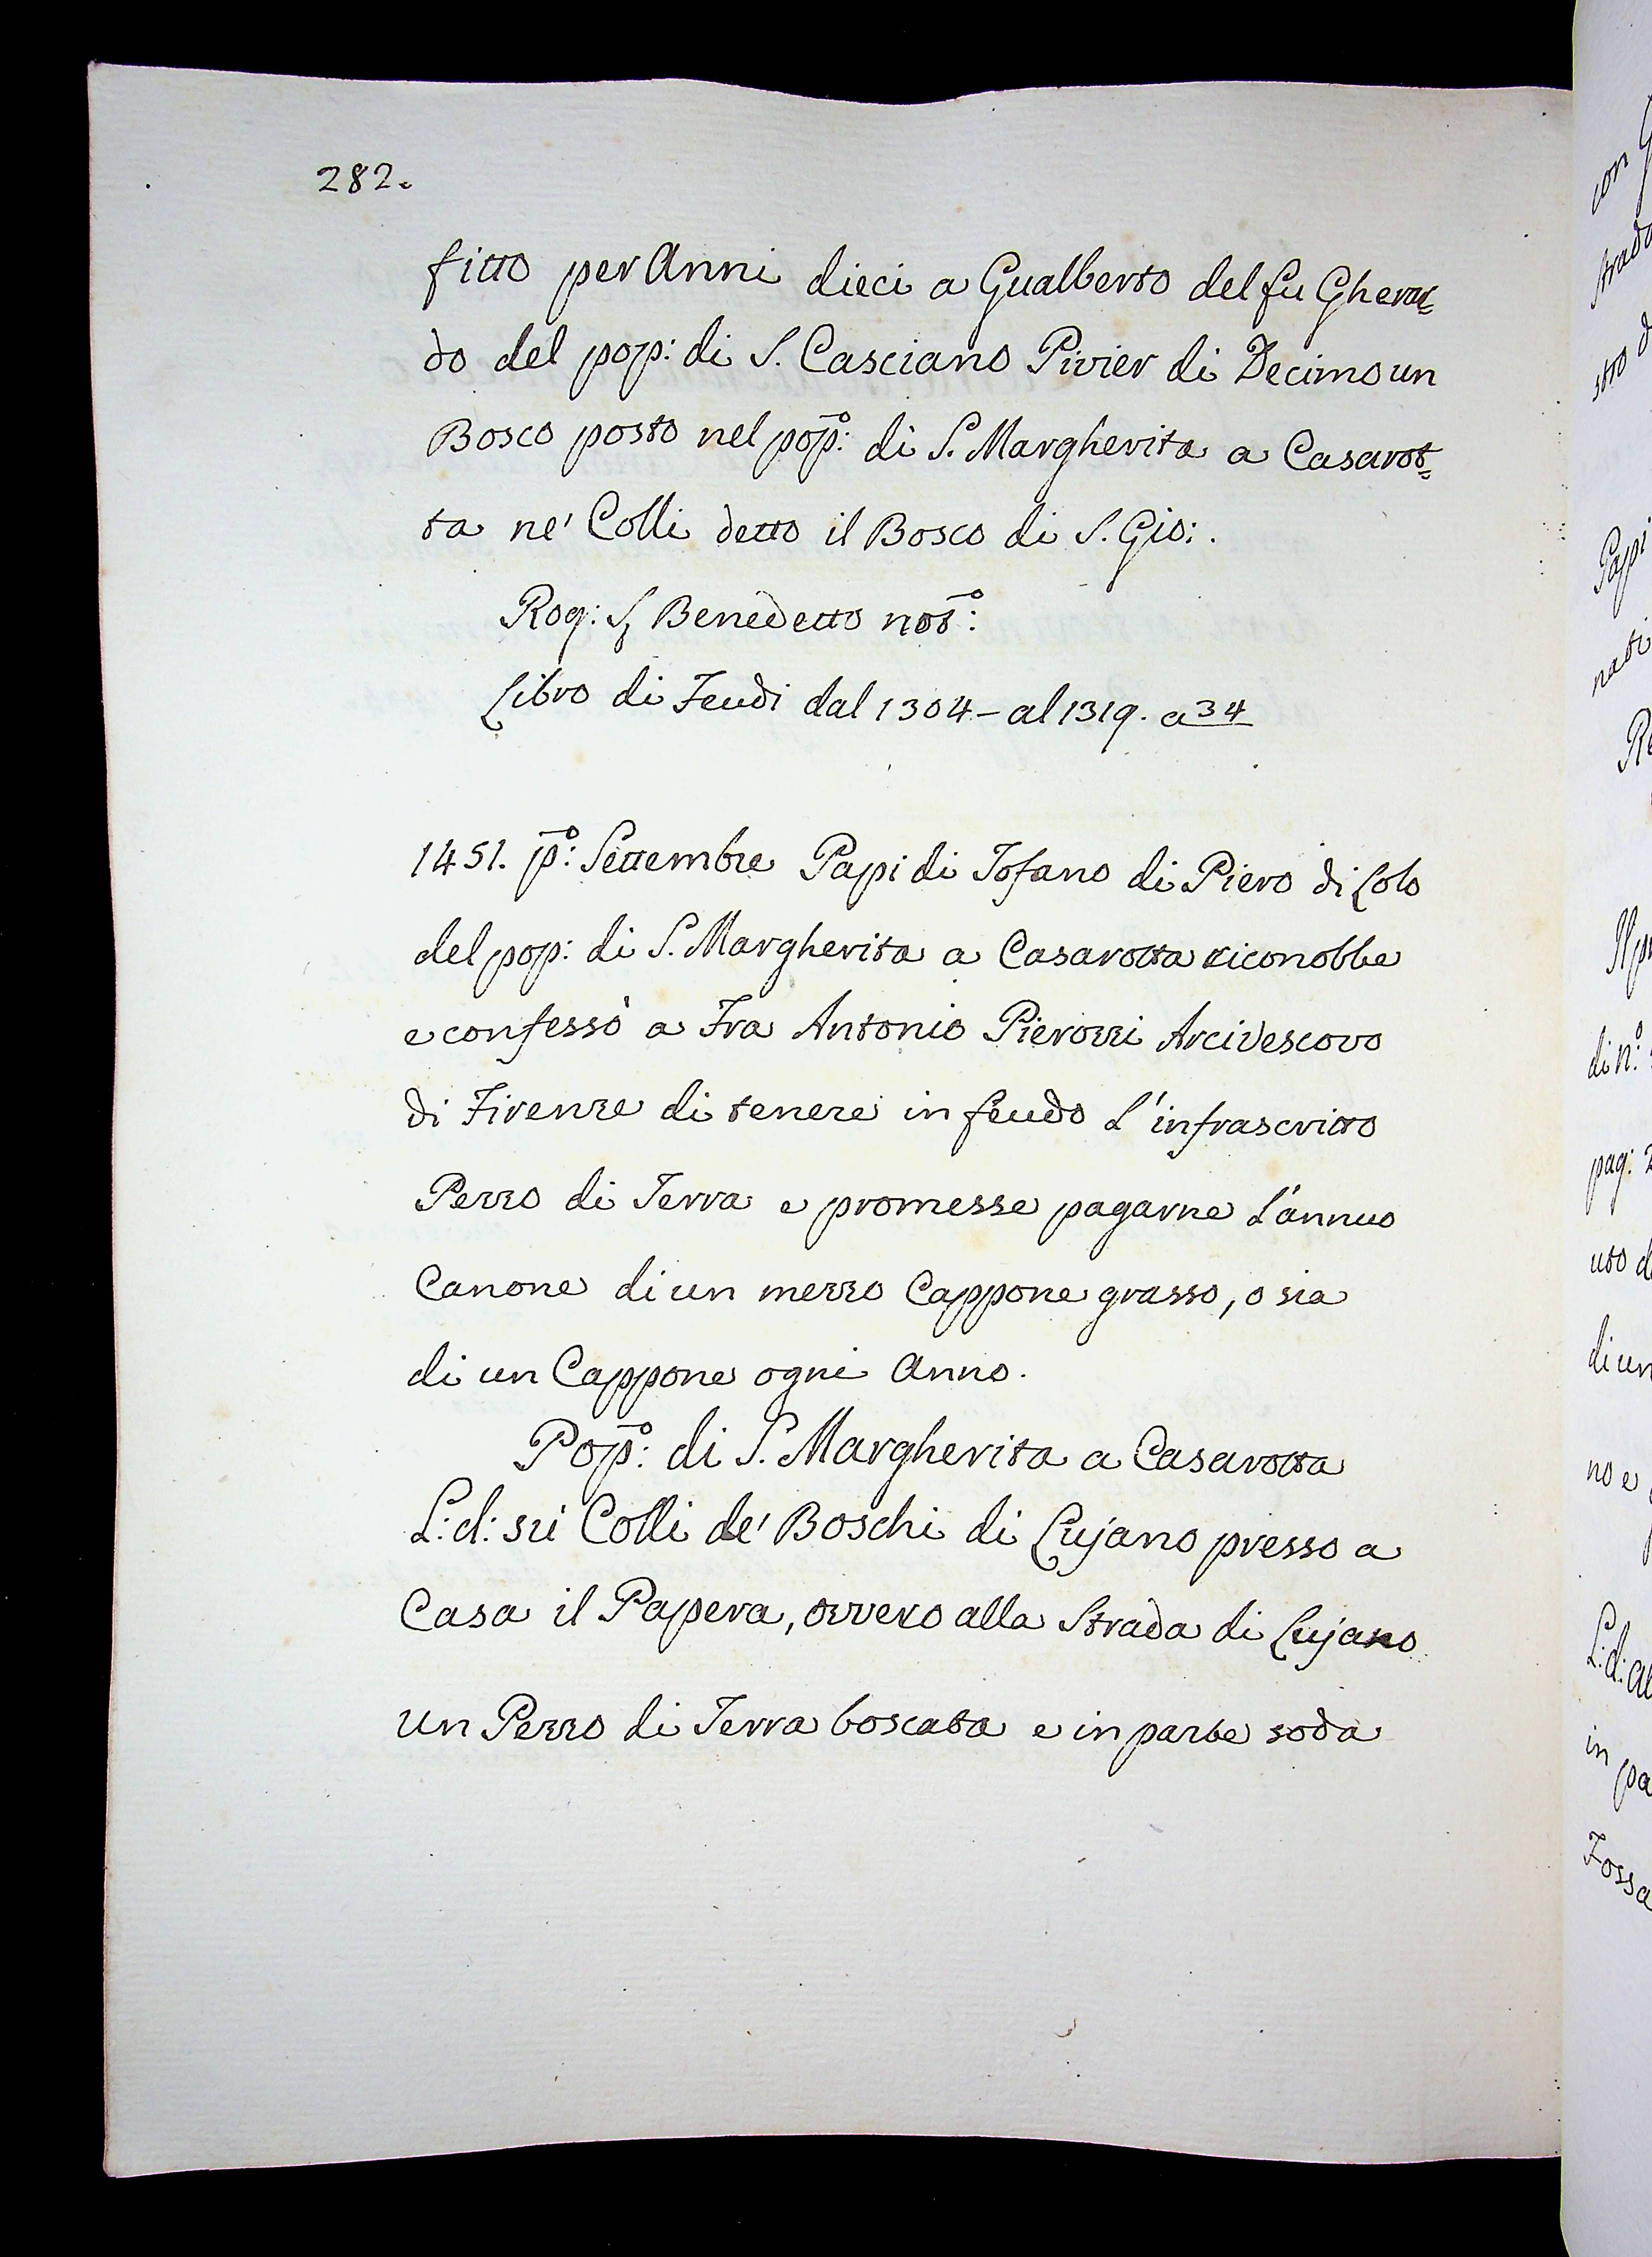 282.
fitto per Anni dieci a Gualberto del fu Gherar=
do del pop: di S. Casciano Pivier di Decimo un
Bosco posto nel pop:º di S. Margherita a Casarot=
ta ne' Colli detto il Bosco di S. Gio: .
Rog: S. Benedetto not:º
Libro di Feudi dal 1304 - al 1319. a 34
1451. p:º Settembre Papi di Tofano di Piero di Lolo
del pop: di S. Margherita a Casarotta riconobbe
e confessò a Fra Antonio Pierozzi Arcivescovo
di Firenze di tenere in feudo l'infrascritto
Pezzo di Terra e promesse pagarne l'annuo
Canone di un mezzo Cappone grasso, o sia
di un Cappone ogni Anno.
Pop:º di S. Margherita a Casarotta
L: d: sui Colli de' Boschi di Lujano presso a
Casa il Papera, ovvero alla Strada di Lujano
un Pezzo di Terra boscata e in parte soda
con
strada
stro d
Papi
nati
di n:º
pag: 2
uto d
di un
no e
L: d: al
in pa
Fossa